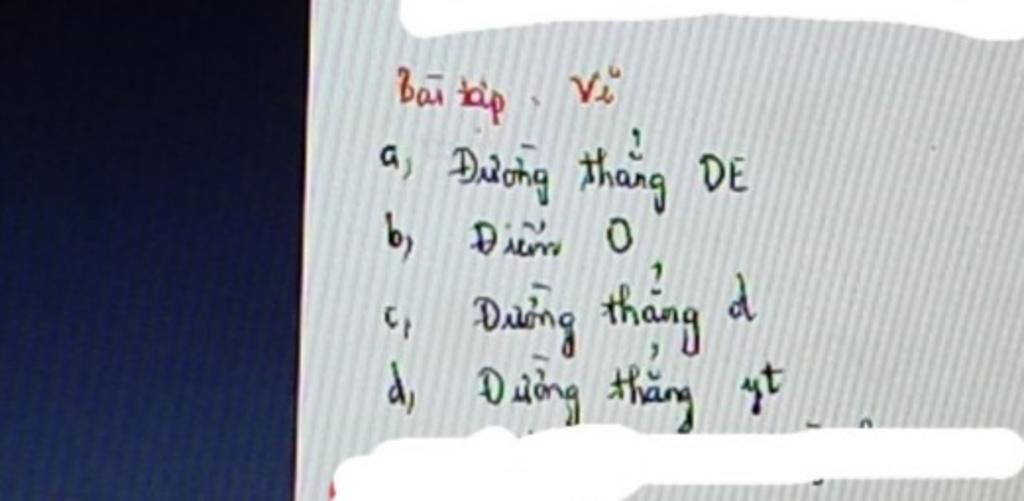 Bài tập. Vẽ
a, Đường thẳng DE
b, Điểm O
c, Đường thẳng d
d, Đường thẳng yt